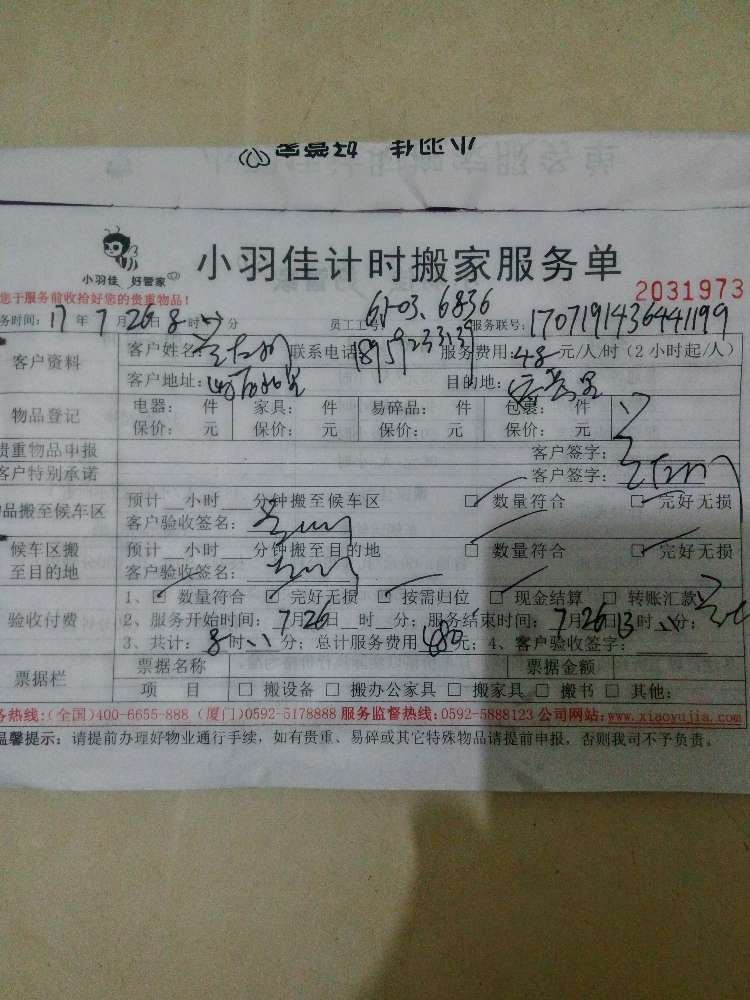 小羽佳 好管家
小羽佳 好管家
小羽佳计时搬家服务单
2031973
您于服务前收拾好您的贵重物品!
6503、6836
务时间: 17 年 7 月 26 日 8 时 分 员工工号 服务联号: 1707191436441199
客户资料
客户姓名: 联系电话 18959233139 服务费用: 48 元/人/时 (2 小时起/人)
客户地址: 目的地:
物品登记
电器: 件 家具: 件 易碎品: 件 包裹: 件
保价: 元 保价: 元 保价: 元 保价: 元
贵重物品申报 客户签字:
客户特别承诺 客户签字:
物品搬至候车区
预计 小时 分钟搬至候车区 □ 数量符合 □ 完好无损
客户验收签名:
候车区搬至目的地
预计 小时 分钟搬至目的地 □ 数量符合 □ 完好无损
客户验收签名:
验收付费
1、□ 数量符合 □ 完好无损 □ 按需归位 □ 现金结算 □ 转账汇款
2、服务开始时间: 7月26日 时 分; 服务结束时间: 7月26日13时 分;
3、共计: 8 时 分; 总计服务费用 480 元; 4、客户验收签字:
票据栏
票据名称 票据金额
项 目 □ 搬设备 □ 搬办公家具 □ 搬家具 □ 搬书 □ 其他:
务热线:(全国)400-6655-888 (厦门)0592-5178888 服务监督热线:0592-5888123 公司网站:www.xiaoyujia.com
温馨提示: 请提前办理好物业通行手续, 如有贵重、易碎或其它特殊物品请提前申报, 否则我司不予负责。